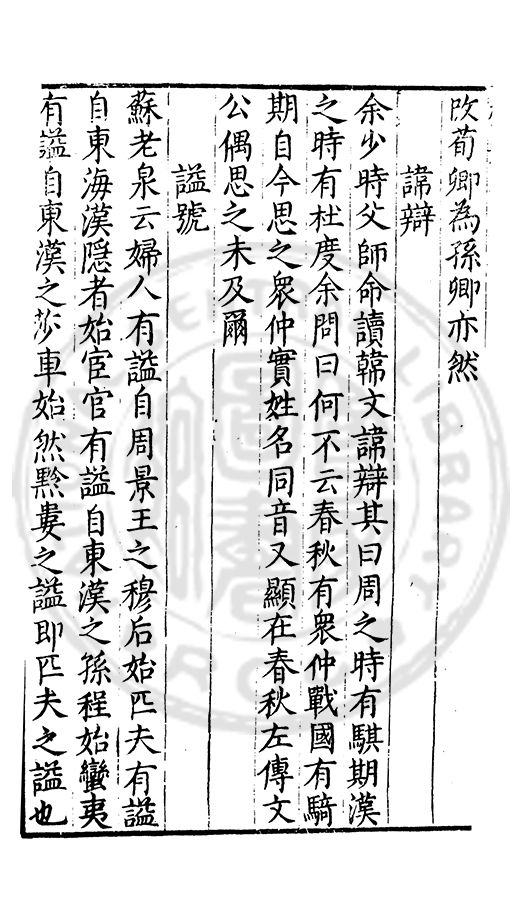 改荀卿為孫卿亦然
諱辯
余少時父師命讀韓文諱辯其曰周之時有騏期漢
之時有杜度余問曰何不云春秋有眾仲戰國有騎
期自今思之眾仲實姓名同音又顯在春秋左傳文
公偶思之未及爾
諡號
蘇老泉云婦人有諡自周景王之穆后始匹夫有諡
自東海漢隱者始宦官有諡自東漢之孫程始蠻夷
有諡自東漢之莎車始然黔婁之諡即匹夫之諡也